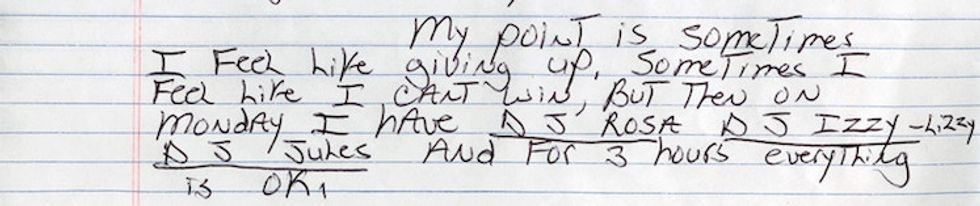 My point is sometimes
I Feel Like giving up, Sometimes I
Feel Like I CANT win, But Then ON
MONDAY I hAve D J ROSA D J IZZY-Lizzy
D J Jules And For 3 hours everything
is OK!